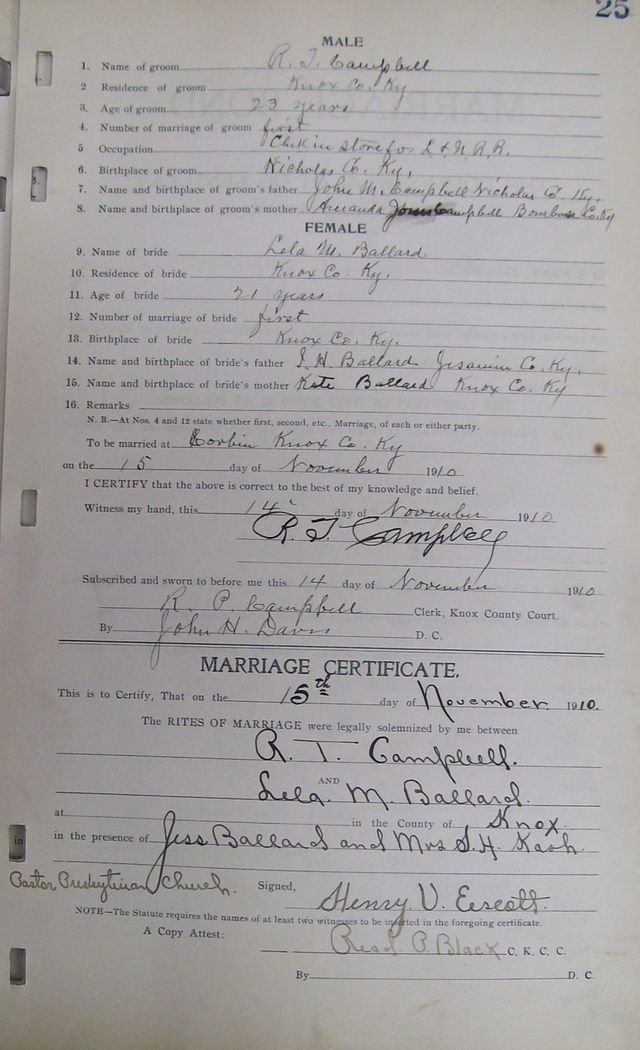 25
MALE
1. Name of groom R. T. Campbell
2 Residence of groom Knox Co. Ky
3. Age of groom 23 years
4. Number of marriage of groom first
5 Occupation Clerk in store for L & N R.R.
6. Birthplace of groom Nicholas Co. Ky.
7. Name and birthplace of groom's father John M. Campbell Nicholas Co. Ky.
8. Name and birthplace of groom's mother Campbell Co. Ky
FEMALE
9. Name of bride Lela M. Ballard
10. Residence of bride Knox Co. Ky.
11. Age of bride 21 years
12. Number of marriage of bride first
13. Birthplace of bride Knox Co. Ky.
14. Name and birthplace of bride's father S. H. Ballard Co. Ky.
15. Name and birthplace of bride's mother Kate Ballard Knox Co. Ky
16. Remarks
N. B.—At Nos. 4 and 12 state whether first, second, etc., Marriage, of each or either party.
To be married at Corbin Knox Co. Ky
on the 15 day of November 1910
I CERTIFY that the above is correct to the best of my knowledge and belief.
Witness my hand, this 14 day of November 1910
R. T. Campbell
Subscribed and sworn to before me this 14 day of November 1910
R. P. Campbell Clerk, Knox County Court.
By John H. Davis D. C.
MARRIAGE CERTIFICATE.
This is to Certify, That on the 15th day of November 1910.
The RITES OF MARRIAGE were legally solemnized by me between
R. T. Campbell.
AND
Lela. M. Ballard.
at in the County of Knox
in the presence of Jess Ballard and Mrs S. H. Kash
Pastor Presbyterian Church. Signed, Henry. V. Escott.
NOTE—The Statute requires the names of at least two witnesses to be inserted in the foregoing certificate.
A Copy Attest: Read P. Black C. K. C. C.
By D. C.